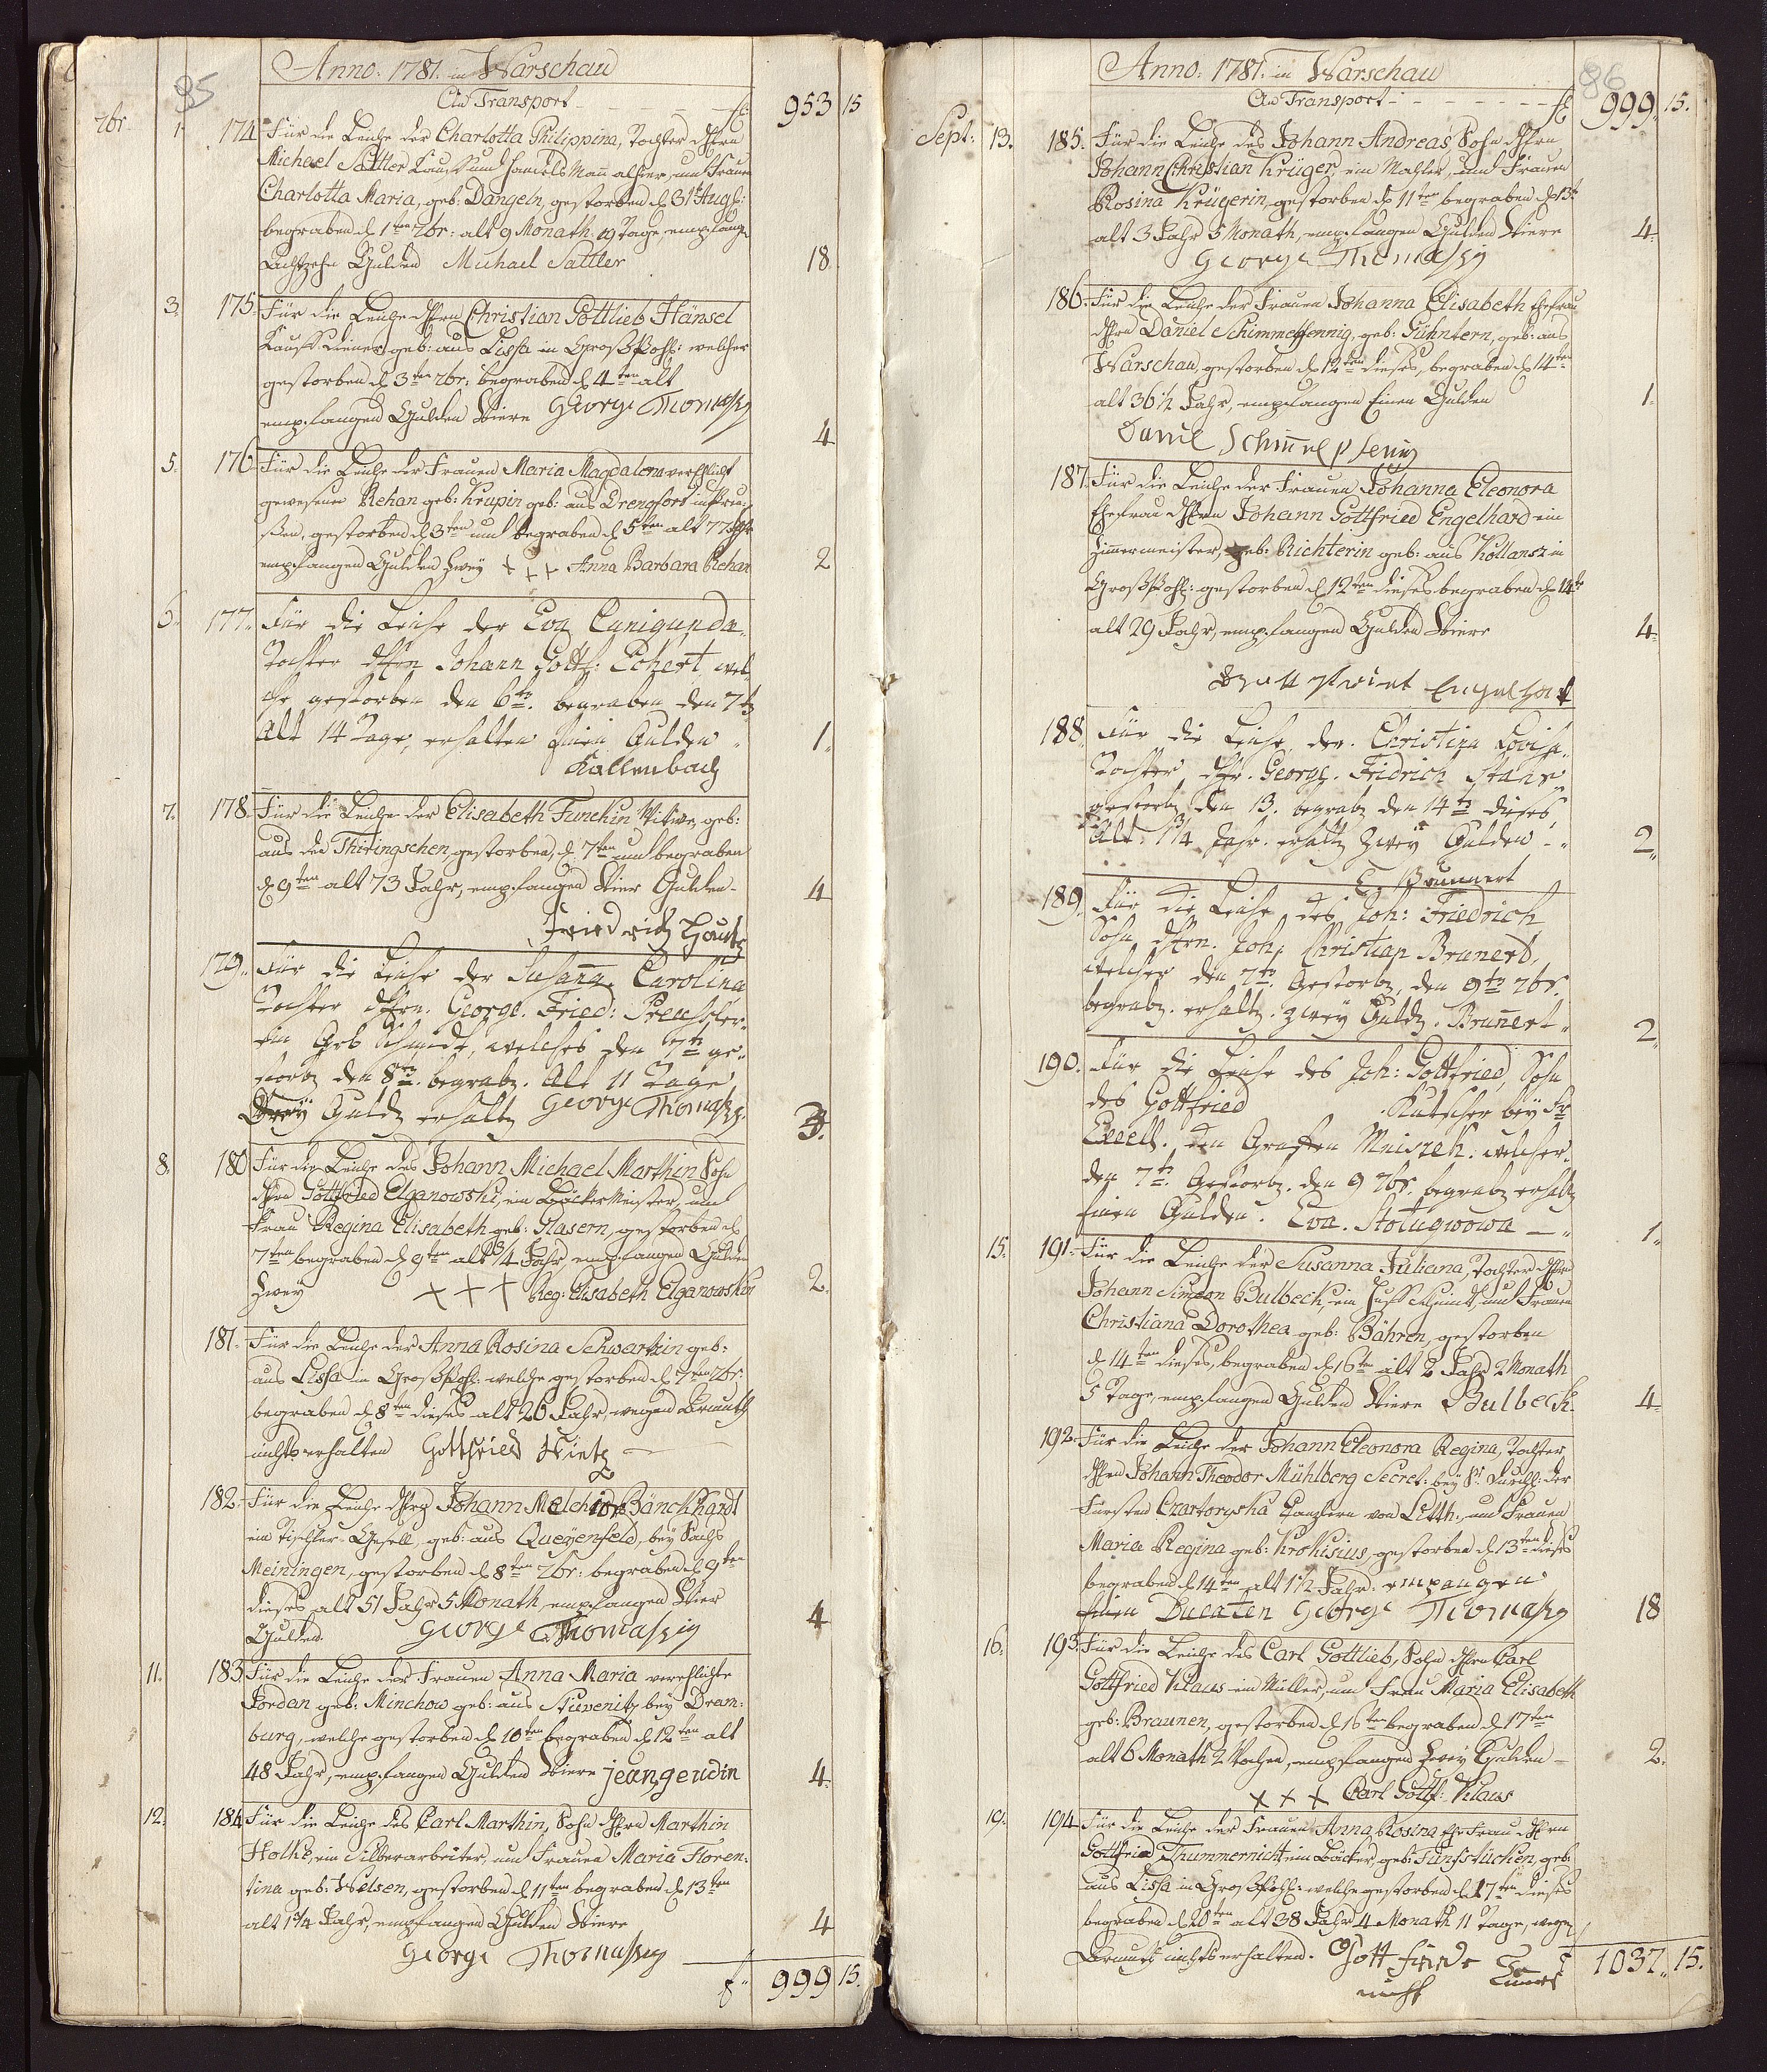 85
Anno. 1781. in Warschau
An Transport - - - - - f: 953 15
7br. 1. 174. Für die Leiche der Charlotta Philippina, Tochter dHrn
Michael Sattler Kauff und Handels Mann alhier, und Frauen
Charlotta Maria, geb: Dangeln, gestorben d. 31t Augl:
begraben d. 1ten 7br: alt 9 Monath 19 Tage, empfange
Achtzehn Gulden Michael Sattler 18.
3. 175. Für die Leiche dHrn Christian Gottlieb Hänsel
Kauff Diener geb: aus Lissa in GroßPohl: welcher
gestorben d. 3ten 7br: begraben d. 4ten alt
empfangen Gulden Viere George Thomassig 4
5. 176. Für die Leiche der Frauen Maria Magdalena verehligt
gewesene Rehan geb: Krupin geb: aus Drengfort in Preu-
ßen, gestorben d. 3ten und begraben d. 5ten alt 77 Jahr
empfangen Gulden Zwey +++ Anna Barbara Rehan 2
6. 177. Für die Leiche der Eva Cunigunda
Tochter dHrn Johann Gottf: Eckert, wel-
che gestorben den 6tn. begraben den 7tn
Alt 14 Tage, erhalten Einen Gulden 1.
Kallenbach
7. 178. Für die Leiche der Elisabeth Funckin Witwe, geb:
aus den Thiringschen, gestorben, d. 7ten und begraben
d. 9ten alt 73 Jahr, empfangen Vier Gulden - 4
Friedrich
179. Für die Leiche der Susanna Carolina
Tochter dHrn. George. Fried: Preussler
ein Schmidt, welches den 7tn ge-
storbn den 8tn. begrabn. Alt 11 Tage
Drey Guldn erhaltn George Thomassig. 3.
8. 180. Für die Leiche des Johann Michael Marthin Sohn
dHrn Gottfried Elganowski, ein Bäcker Meister, und
Frau Regina Elisabeth geb: Glasern, gestorben d.
7ten begraben d. 9ten alt 3/4 Jahr empfangen Gulden
Zwey +++ Reg: Elisabeth Elganowskin 2.
181. Für die Leiche der Anna Rosina Schwartzin geb:
aus Lissa in GroßPohl: welche gestorben d. 7ten 7br:
begraben d. 8ten dieses alt 26 Jahr, wegen Armuth
nichts erhalten Gottfried
182. Für die Leiche dHrn Johann Melchior Bänckhardt
ein Tischler-Gesell, geb: aus Queyenfeld, bey Sachs
Meiningen, gestorben d. 8ten 7br: begraben d. 9ten
dieses alt 51 Jahr 5 Monath, empfangen Vier
Gulden. George Thomassig 4
11. 183. Für die Leiche der Frauen Anna Maria verehlichte
Jordan geb: Minchow geb: aus Stuvenitz bey Dram-
burg, welche gestorben d. 10ten begraben d. 12ten alt
48 Jahr, empfangen Gulden Viere jean, geudin 4.
12. 184. Für die Leiche des Carl Marthin, Sohn dHrn Marthin
Holke, ein Silberarbeiter, und Frauen Maria Floren-
tina geb: Welsen, gestorben d. 11ten begraben d. 13ten
alt 1 3/4 Jahr, empfangen Gulden Viere 4
George Thomassig
f. 999 15.
86
Anno. 1781. in Warschau
An Transport - - - - - - f 999. 15.
Sept: 13. 185. Für die Leiche des Johann Andreas, Sohn dHrn
Johann Christian Krüger, ein Mahler, und Frauen
Rosina Krügerin, gestorben d. 11ten begraben d. 13t
alt 3 Jahr 5 Monath, empfangen Gulden Viere 4.
George Thomassig
186. Für die Leiche der Frauen Johanna Elisabeth Ehefrau
dHrn Daniel Schimmelfennig, geb: Gühntern, geb: aus
Warschau, gestorben d. 12ten dieses, begraben d. 14ten
alt 36 1/2 Jahr, empfangen Einen Gulden 1.
187. Für die Leiche der Frauen Johanna Eleonora
Ehefrau dHrn Johann Gottfried Engelhard ein
Zimmermeister, geb: Richterin geb: aus Kollansz in
GroßPohl: gestorben d. 12ten dieses begraben d. 14te
alt 29 Jahr, empfangen Gulden Viere 4.
Engelhart
188. Für die Leiche der. Christina Lovisa.
Tochter dHr. George. Fridrich
gestorbn den 13. begrabn den 14tn dieses
Alt. 1 3/4 Jahr. erhaltn Zwey Gulden 2.
Brunnert
189. Für die Leiche des Joh: Friedrich
Sohn dHrn. Joh: Christian Brunert,
welcher den 7tn. Gestorbn, den 9tn 7br.
begrabn. erhaltn. zwey Guldn. Brunnert 2.
190. Für die Leiche des Joh: Gottfried, Sohn
des Gottfried . Kutscher bey Sr
Excell. den Graffen Mniszek. welcher
den 7tn. Gestorbn. den 9 7br. begrabn erhaltn
Einen Gulden. Eva. Stolugwowa - 1.
15. 191. Für die Leiche der Susanna Juliana, Tochter dHrn
Johann Simeon Bulbeck, ein Huff Schmidt, und Frauen
Christiana Dorothea geb: Bähren, gestorben
d. 14ten dieses, begraben d. 16ten alt 2 Jahr 2 Monath
5 Tage, empfangen Gulden Viere Bulbeck. 4
192. Für die Leiche der Johann Eleonora Regina, Tochter
dHrn Johann Theodor Mühlberg Secret: bey Sr Durchl: der
Fursten Czartoryska Canzlern von Litth: und Frauen
Maria Regina geb: Krohisius, gestorben d. 13ten dieses
begraben d. 14ten alt 1 1/2 Jahr. empangen
Einen Ducaten George Thomassig 18
16. 193. Für die Leiche des Carl Gottlieb, Sohn dHrn Carl
Gottfried Klaws ein Müller, und Frau Maria Elisabeth
geb: Braunen, gestorben d. 16ten begraben d. 17ten
alt 6 Monath 2 Wochen, empfangen Zwey Gulden - 2.
+++ Carl Gottf: Klaws
19. 194. Für die Leiche der Frauen Anna Rosina Ehe Frau dHrn
Gottfried Thummernicht ein Bäcker, geb: Funfstücken, geb:
aus Lissa in GroßPohl: welche gestorben d. 17ten dieses
begraben d. 20ten alt 38 Jahr 4 Monath 11 Tage, wegen
Armuth nichts erhalten. Gottfried
nicht
f 1037. 15.